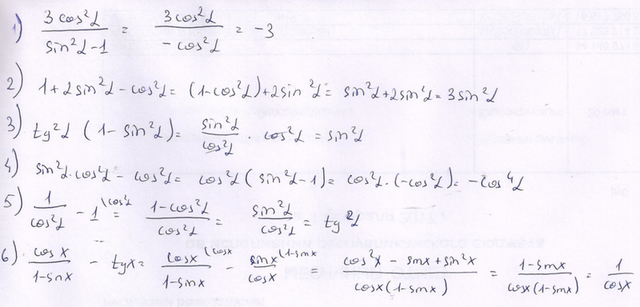 1) 3cos²α / sin²α-1 = 3cos²α / -cos²α = -3
2) 1+2sin²α - cos²α = (1-cos²α)+2sin²α = sin²α+2sin²α = 3sin²α
3) tg²α (1 - sin²α) = sin²α / cos²α · cos²α = sin²α
4) sin²α·cos²α - cos²α = cos²α (sin²α-1) = cos²α·(-cos²α) = -cos⁴α
5) 1 / cos²α - 1 \cos²α = 1-cos²α / cos²α = sin²α / cos²α = tg²α
6) cosx / 1-sinx - tgx = cosx \cosx / 1-sinx - sinx \1-sinx / cosx = cos²x - sinx + sin²x / cosx(1-sinx) = 1-sinx / cosx(1-sinx) = 1 / cosx